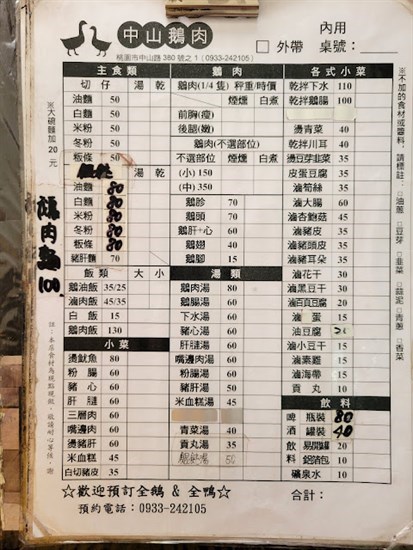 中山鵝肉
桃園市中山路380號之1 (0933-242105)
內用
□外帶 桌號：
※大碗麵加20元
主食類
切仔 湯 乾
油麵 50
白麵 50
米粉 50
冬粉 50
粄條 50
湯 乾
油麵 80
白麵 80
米粉 80
冬粉 80
粄條 80
豬肝麵 70
鵝肉麵 100
飯類 大 小
鵝油飯 35/25
滷肉飯 45/35
白飯 15
鵝肉飯 130
小菜
燙魷魚 80
粉腸 60
豬心 60
肝膉 60
三層肉 60
嘴邊肉 60
燙豬肝 60
米血糕 45
白切豬皮 35
鵝肉
鵝肉(1/4隻) 秤重/時價
煙燻 白煮
前胸(瘦)
後腿(嫩)
鵝肉(不選部位)
不選部位 煙燻 白煮
(小) 150
(中) 350
鵝胗 70
鵝頭 70
鵝肝+心 60
鵝翅 40
鵝腳 15
湯類
鵝肉湯 80
鵝腸湯 60
下水湯 60
豬心湯 60
肝膉湯 60
嘴邊肉湯 60
粉腸湯 60
豬肝湯 60
米血糕湯 45
青菜湯 40
貢丸湯 35
50
各式小菜
乾拌下水 110
乾拌鵝腸 100
燙青菜 40
乾拌川耳 40
燙豆芽韭菜 35
皮蛋豆腐 35
滷筍絲 35
滷大腸 60
滷杏鮑菇 45
滷豬皮 35
滷豬頭皮 35
滷豬耳朵 35
滷花干 30
滷黑豆干 30
滷百頁豆腐 20
滷蛋 15
油豆腐
滷小豆干 15
滷素雞 15
滷海帶 15
貢丸 10
飲料
啤酒 瓶裝 80
罐裝 40
飲料 易開罐 20
鋁箔包 10
礦泉水 10
※不加的食材或醬料，請標註：□油蔥 □豆芽 □韭菜 □蒜泥 □青蔥 □香菜
☆歡迎預訂全鵝 & 全鴨☆
預約電話：0933-242105
合計：